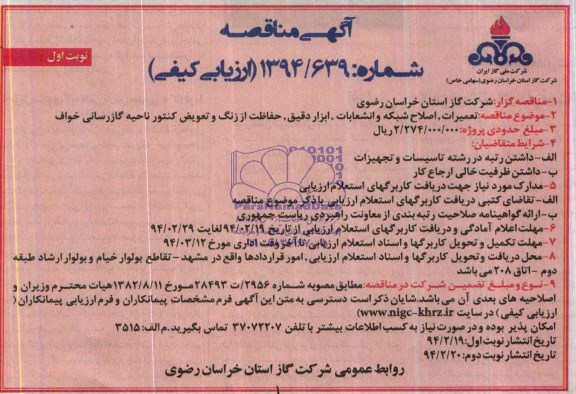 آگهی مناقصه
شماره: ۱۳۹۴/۶۳۹ (ارزیابی کیفی)
نوبت اول
شرکت ملی گاز ایران
شرکت گاز استان خراسان رضوی(سهامی خاص)
۱-مناقصه گزار: شرکت گاز استان خراسان رضوی
۲-موضوع مناقصه: تعمیرات، اصلاح شبکه و انشعابات ، ابزار دقیق، حفاظت از زنگ و تعویض کنتور ناحیه گازرسانی خواف
۳-مبلغ حدودی پروژه: ۲/۲۷۴/۰۰۰/۰۰۰ ریال
۴-شرایط متقاضیان:
الف-داشتن رتبه در رشته تاسیسات و تجهیزات
ب-داشتن ظرفیت خالی ارجاع کار
۵-مدارک مورد نیاز جهت دریافت کاربرگهای استعلام ارزیابی
الف-تقاضای کتبی دریافت کاربرگهای استعلام ارزیابی با ذکر موضوع مناقصه
ب-ارائه گواهینامه صلاحیت رتبه بندی از معاونت راهبردی ریاست جمهوری
۶-مهلت اعلام آمادگی و دریافت کاربرگهای استعلام ارزیابی از تاریخ ۹۴/۰۲/۱۹ لغایت ۹۴/۰۲/۲۹
۷-مهلت تکمیل و تحویل کاربرگها و اسناد استعلام ارزیابی تا آخر وقت اداری مورخ ۹۴/۰۳/۱۲
۸-محل دریافت و تحویل کاربرگها و اسناد استعلام ارزیابی، امور قراردادها واقع در مشهد - تقاطع بولوار خیام و بولوار ارشاد طبقه
دوم -اتاق ۲۰۸ می باشد
۹-نوع و مبلغ تضمین شرکت در مناقصه: مطابق مصوبه شماره ۲۹۵۶/ت ۲۸۴۹۳ مورخ ۱۳۸۲/۸/۱۱ هیات محترم وزیران و
اصلاحیه های بعدی آن می باشد. شایان ذکر است دسترسی به متن این آگهی فرم مشخصات پیمانکاران و فرم ارزیابی پیمانکاران (
ارزیابی کیفی ) در سایت (www.nigc-khrz.ir)
امکان پذیر بوده و در صورت نیاز به کسب اطلاعات بیشتر با تلفن ۳۷۰۷۲۲۰۷ تماس بگیرید. م الف: ۳۵۱۵
تاریخ انتشار نوبت اول: ۹۴/۲/۱۹
تاریخ انتشار نوبت دوم: ۹۴/۲/۲۰
روابط عمومی شرکت گاز استان خراسان رضوی